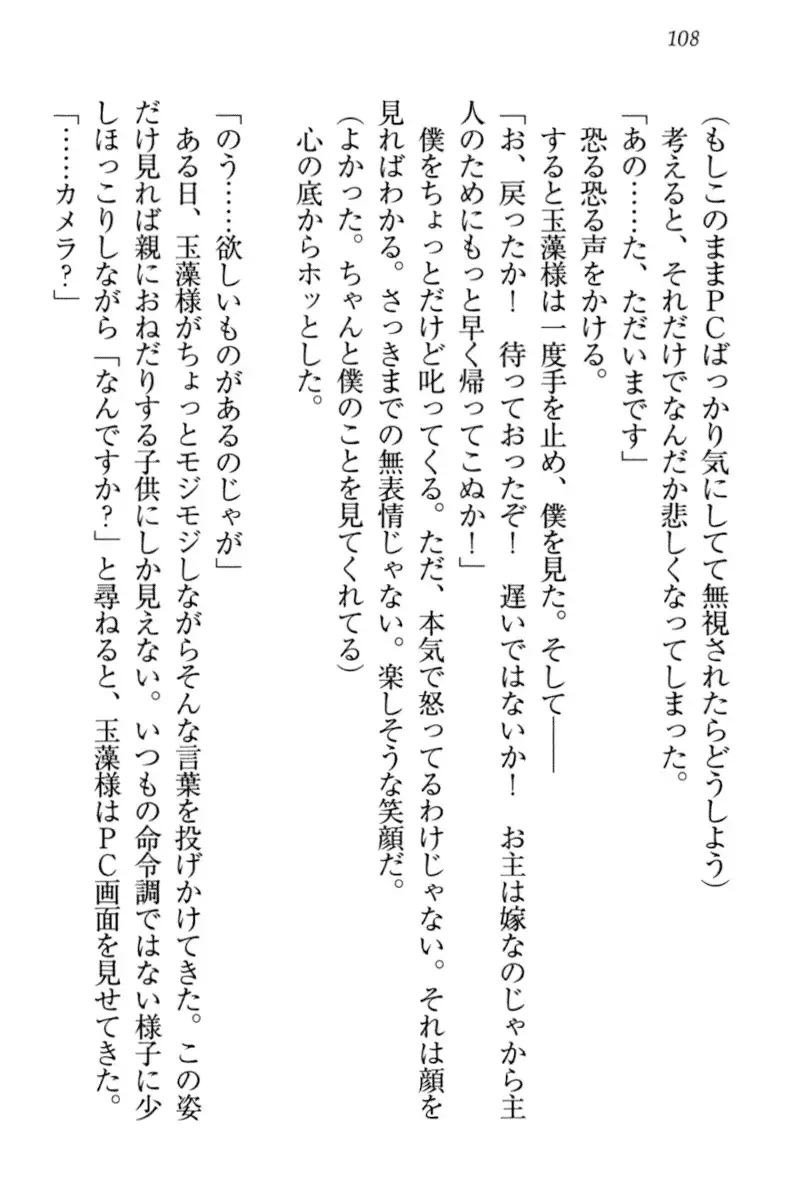 108
(もしこのままPCばっかり気にしてて無視されたらどうしよう)
考えると、それだけでなんだか悲しくなってしまった。
「あの……た、ただいまです」
恐る恐る声をかける。
すると玉藻様は一度手を止め、僕を見た。そして――
「お、戻ったか!　待っておったぞ!　遅いではないか!　お主は嫁なのじゃから主
人のためにもっと早く帰ってこぬか!」
僕をちょっとだけど叱ってくる。ただ、本気で怒ってるわけじゃない。それは顔を
見ればわかる。さっきまでの無表情じゃない。楽しそうな笑顔だ。
(よかった。ちゃんと僕のことを見てくれてる)
心の底からホッとした。
「のう……欲しいものがあるのじゃが」
ある日、玉藻様がちょっとモジモジしながらそんな言葉を投げかけてきた。この姿
だけ見れば親におねだりする子供にしか見えない。いつもの命令調ではない様子に少
しほっこりしながら「なんですか?」と尋ねると、玉藻様はPC画面を見せてきた。
「……カメラ?」